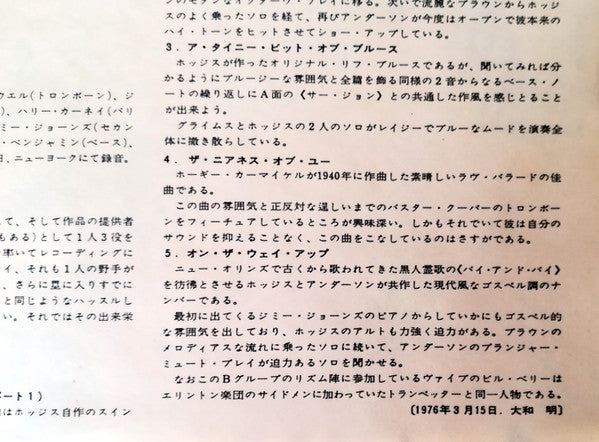 ウエル(トロンボーン)、ジ
)、ハリー・カーネイ(バリ
ミー・ジョーンズ(セカン
・ベンジャミン(ベース)
日、ニューヨークにて録音。
て、そして作品の提供者
もある)として1人3役を
率いてレコーディングに
イ、それも1人の野手が
、さらに塁に入りすでに
と同じようなハッスルし
い。それではその出来栄
ート1)
はホッジス自作のスイン
・プレイに移る。次いで流麗なブラウンからホッジ
スのよく乗ったソロを経て、再びアンダーソンが今度はオープンで彼本来の
ハイ・トーンをヒットさせてショー・アップしている。
3．ア・タイニー・ビット・オブ・ブルース
ホッジスが作ったオリジナル・リフ・ブルースであるが、聞いてみれば分
かるようにブルージーな雰囲気と全篇を飾る同様の2音からなるベース・ノ
ートの繰り返しにA面の《サー・ジョン》との共通した作風を感じとること
が出来よう。
グライムスとホッジスの2人のソロがレイジーでブルーなムードを演奏全
体に撒き散らしている。
4．ザ・ニアネス・オブ・ユー
ホーギー・カーマイケルが1940年に作曲した素晴しいラヴ・バラードの佳
曲である。
この曲の雰囲気と正反対な逞しいまでのバスター・クーパーのトロンボー
ンをフィーチュアしているところが興味深い。しかもそれでいて彼は自分の
サウンドを抑えることなく、この曲をこなしているのはさすがである。
5．オン・ザ・ウェイ・アップ
ニュー・オリンズで古くから歌われてきた黒人霊歌の《バイ・アンド・バイ》
を彷彿とさせるホッジスとアンダーソンが共作した現代風なゴスペル調のナ
ンバーである。
最初に出てくるジミー・ジョーンズのピアノからしていかにもゴスペル的
な雰囲気を出しており、ホッジスのアルトも力強く迫力がある。ブラウンの
メロディアスな流れに乗ったソロに続いて、アンダーソンのプランジャー・
ミュート・プレイが迫力あるソロを聞かせる。
なおこのBグループのリズム陣に参加しているヴァイブのビル・ベリーは
エリントン楽団のサイドメンに加わっていたトランペッターと同一人物である。
〔1976年3月15日．大和　明〕